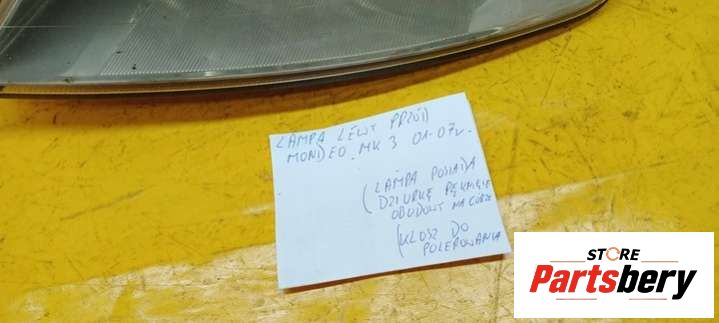 LAMPA LEWY PRZÓD
MONDEO MK3 01-07r.
(LAMPA POSIADA
DZIURKĘ PĘKNIĘCIE
OBUDOWY NA GÓRZE
(KLOSZ DO
POLEROWANIA
STORE
Partsbery